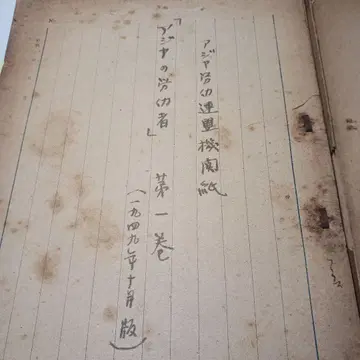 アジヤ労仂連盟機関紙
「アジヤの労仂者」 第一巻
(一九四九年十月版)